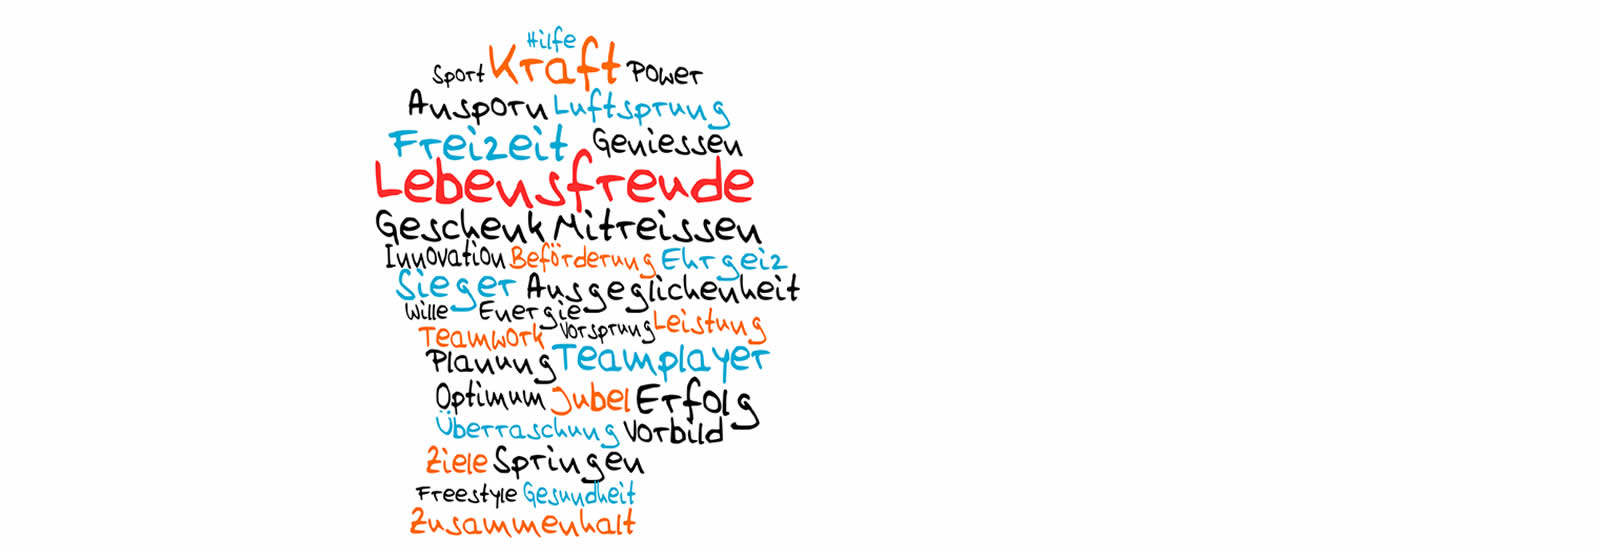 Hilfe
Sport Kraft Power
Ansporn Luftsprung
Freizeit Geniessen
Lebensfreude
Geschenk Mitreissen
Innovation Beförderung Ehrgeiz
Sieger Ausgeglichenheit
Wille Energie
Teamwork Vorsprung Leistung
Planung Teamplayer
Optimum Jubel Erfolg
Überraschung Vorbild
Ziele Springen
Freestyle Gesundheit
Zusammenhalt